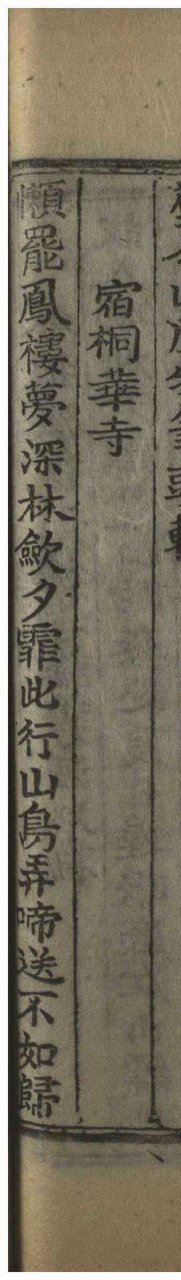 宿桐華寺
懶罷鳳褸夢深林歛夕霏此行山鳥弄啼送不如歸